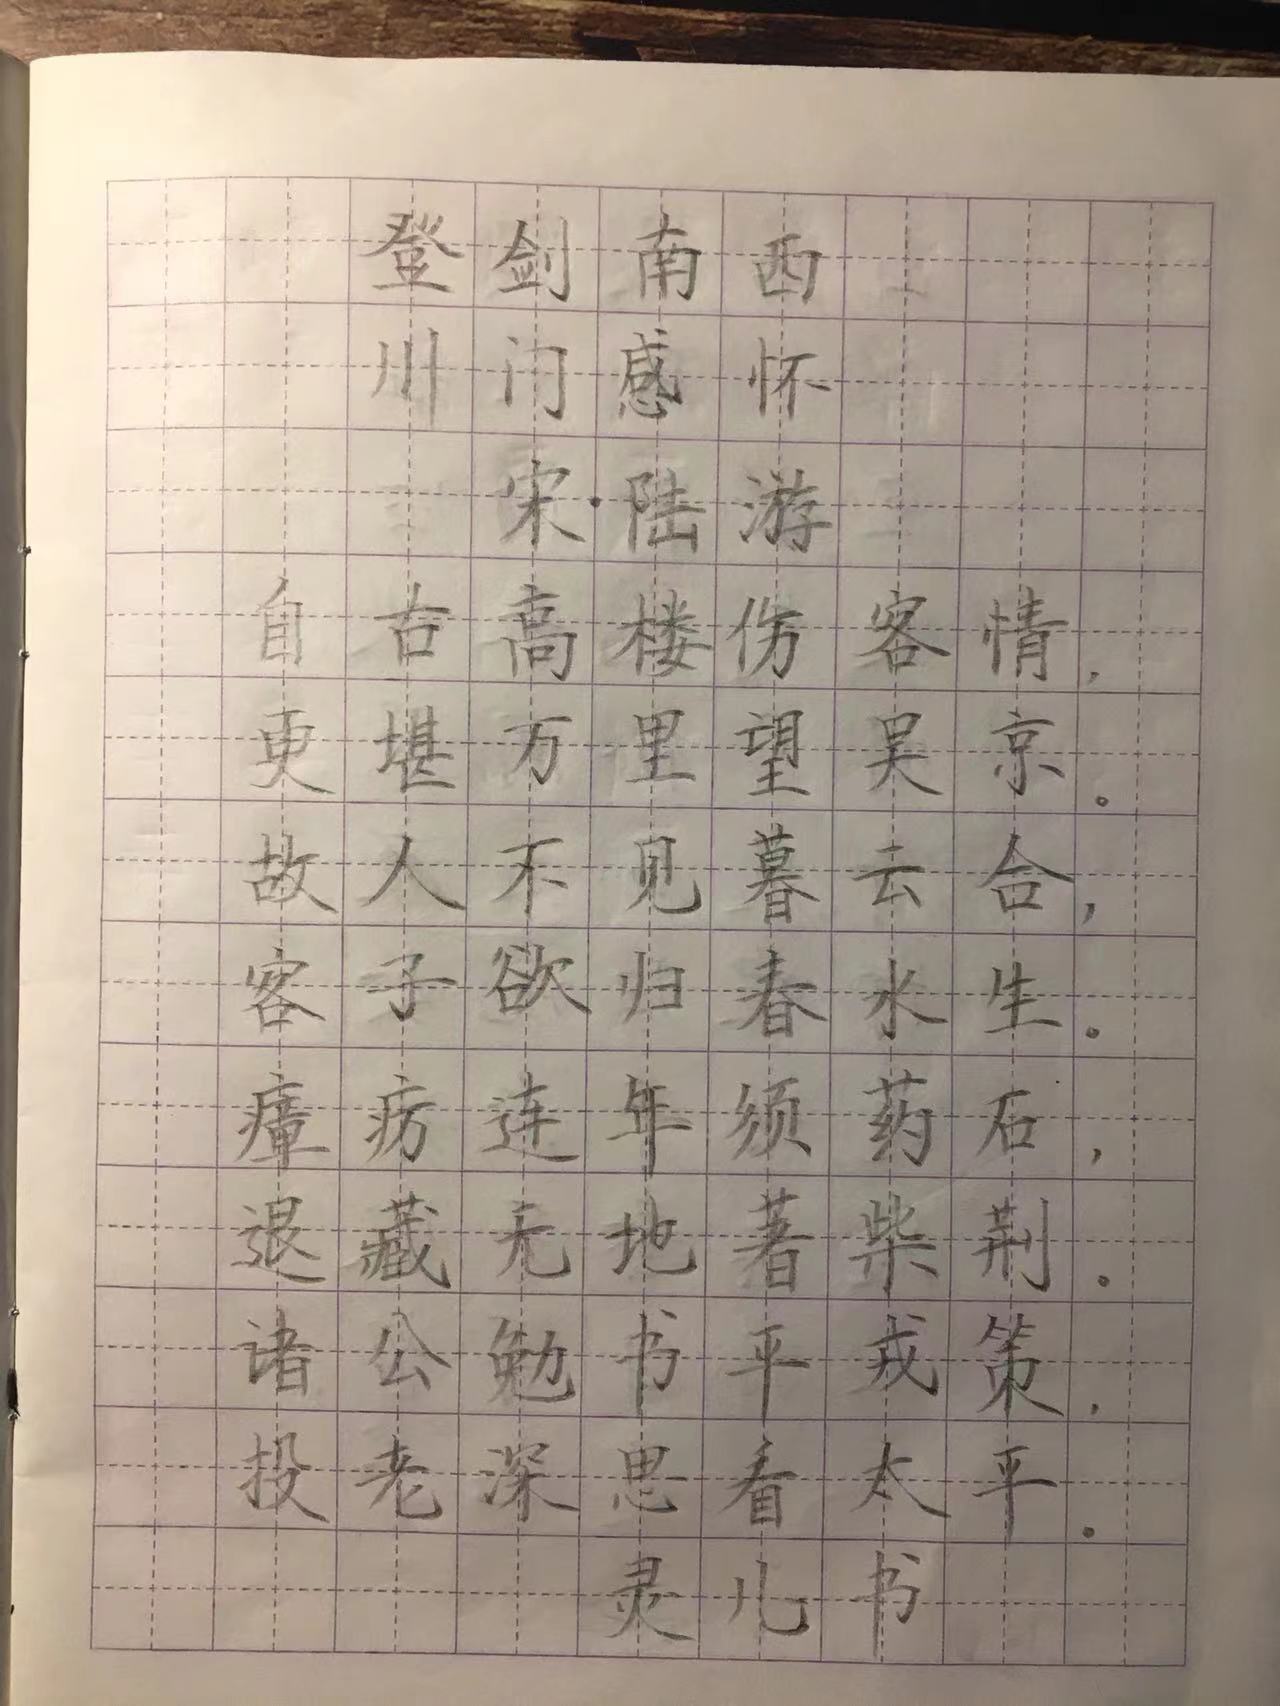 登剑南西
川门感怀
宋·陆游
自古高楼伤客情，
更堪万里望吴京。
故人不见暮云合，
客子欲归春水生。
瘴疠连年须药石，
退藏无地著柴荆。
诸公勉书平戎策，
投老深思看太平。
灵儿书